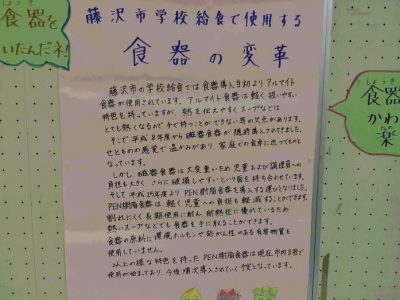 食器を
いたんだネ!
藤沢市学校給食で使用する
食器の変革
藤沢市の学校給食では食器導入当初よりアルマイト
食器が使用されています。アルマイト食器は軽く扱いやすい
特色を持っていますが、熱を伝えやすくスープなどは
とても熱くなるので手で持つことができない等の欠点があります。
そこで平成8年度から磁器食器が随時導入されてきました。
せとものの感覚で温かみがあり、家庭での食卓に近づくものと
なっています。
しかし、磁器食器は大変重いため児童および調理員への
負担も大きく、さらに破損しやすいという面を持ち合わせています。
そして平成15年度よりPEN樹脂食器を導入する運びとなりました。
PEN樹脂食器は、軽く児童への負担も軽減することができます。
割れにくく長期使用に耐え、耐熱性に優れているため
熱いスープなどでも食器を手に取ることができます。
食器の原料に環境ホルモンや発がん性のある有害物質を
使用していません。
以上の様な特色を持ったPEN樹脂食器は現在市内8校で
使用が始まっており、今後順次導入されていく予定となっています。
しょっき
食器
かわ
楽